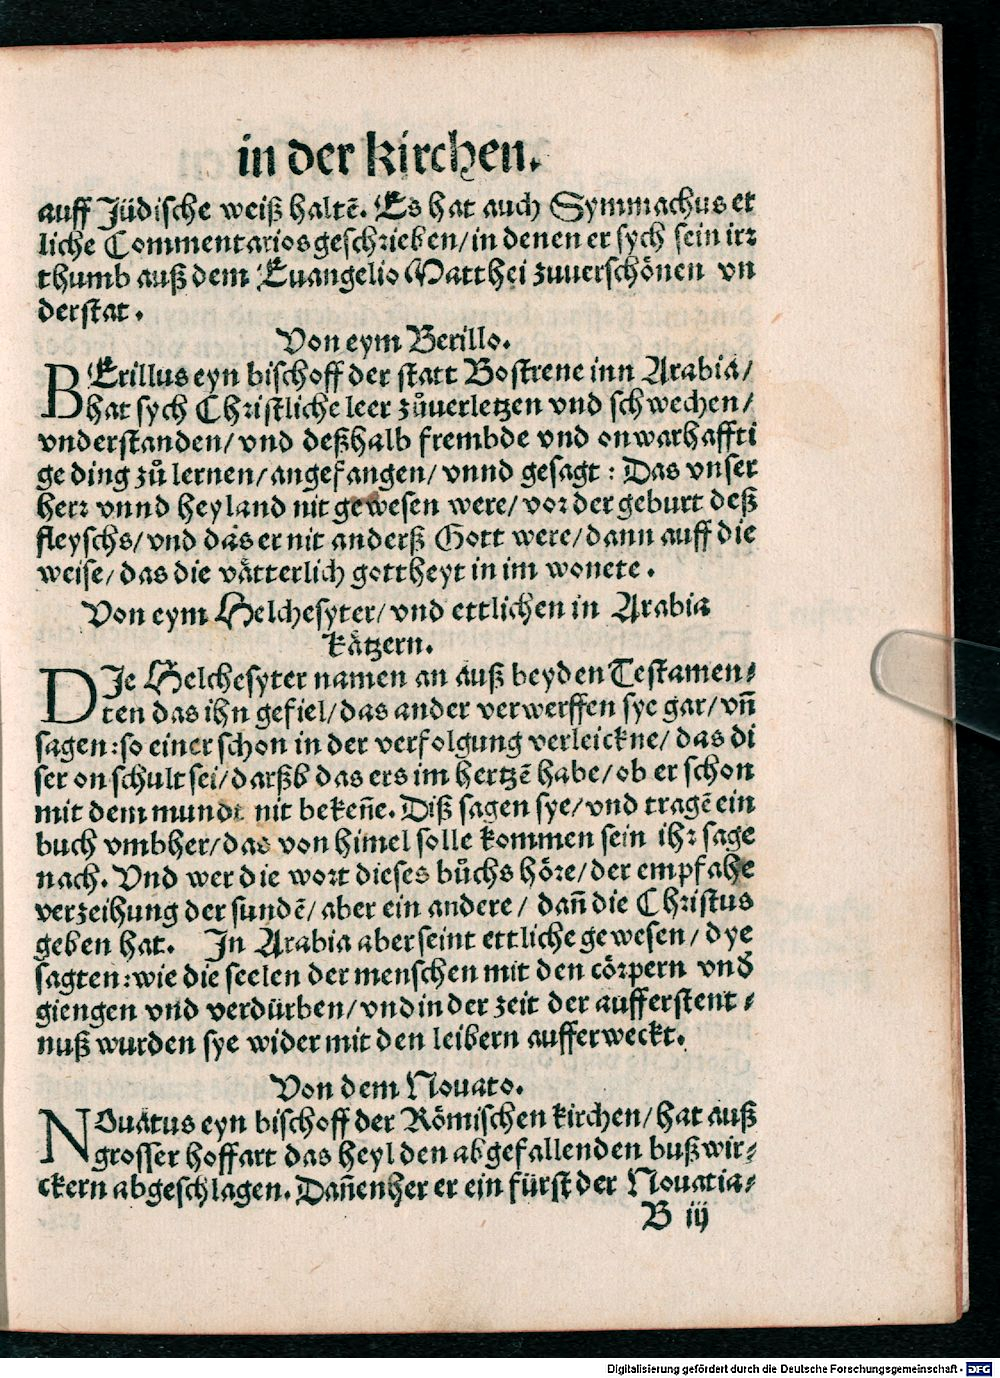 in der kirchen.
auff Jüdische weiß haltē. Es hat auch Symmachus et
liche Commentarios geschrieben/in denen er sych sein irr⸗
thumb auß dem Euangelio Matthei zuuerschönen vn
derstat.
Von eym Berillo.
BErillus eyn bischoff der statt Bostrene inn Arabia/
hat sych Christliche leer zůuerletzen vnd schwechen/
vnderstanden/vnd deßhalb frembde vnd onwarhaffti
ge ding zů lernen/angefangen/vnnd gesagt: Das vnser
herr vnnd heyland nit gewesen were/vor der geburt deß
fleyschs/vnd das er nit anderß Gott were/dann auff die
weise/das die vätterlich gottheyt in im wonete.
Von eym Helchesyter/vnd ettlichen in Arabia
kätzern.
DJe Helchesyter namen an auß beyden Testamen⸗
ten das ihn gefiel/das ander verwerffen sye gar/vñ
sagen:so einer schon in der verfolgung verleickne/das di
ser on schult sei/darßb das ers im hertzē habe/ob er schon
mit dem mundt nit bekeñe. Diß sagen sye/vnd tragē ein
buch vmbher/das von himel solle kommen sein ihr sage
nach. Vnd wer die wort dieses bůchs höre/der empfahe
verzeihung der sundē/aber ein andere/dañ die Christus
geben hat. Jn Arabia aber seint ettliche gewesen/dye
sagten:wie die seelen der menschen mit den cörpern vnd̄
giengen vnd verdürben/vnd in der zeit der aufferstent⸗
nuß wurden sye wider mit den leibern aufferweckt.
Von dem Nouato.
NOuatus eyn bischoff der Römischen kirchen/hat auß
grosser hoffart das heyl den abgefallenden bußwir⸗
ckern abgeschlagen. Dañenher er ein fürst der Nouatia⸗
B iij
Digitalisierung gefördert durch die Deutsche Forschungsgemeinschaft - DFG